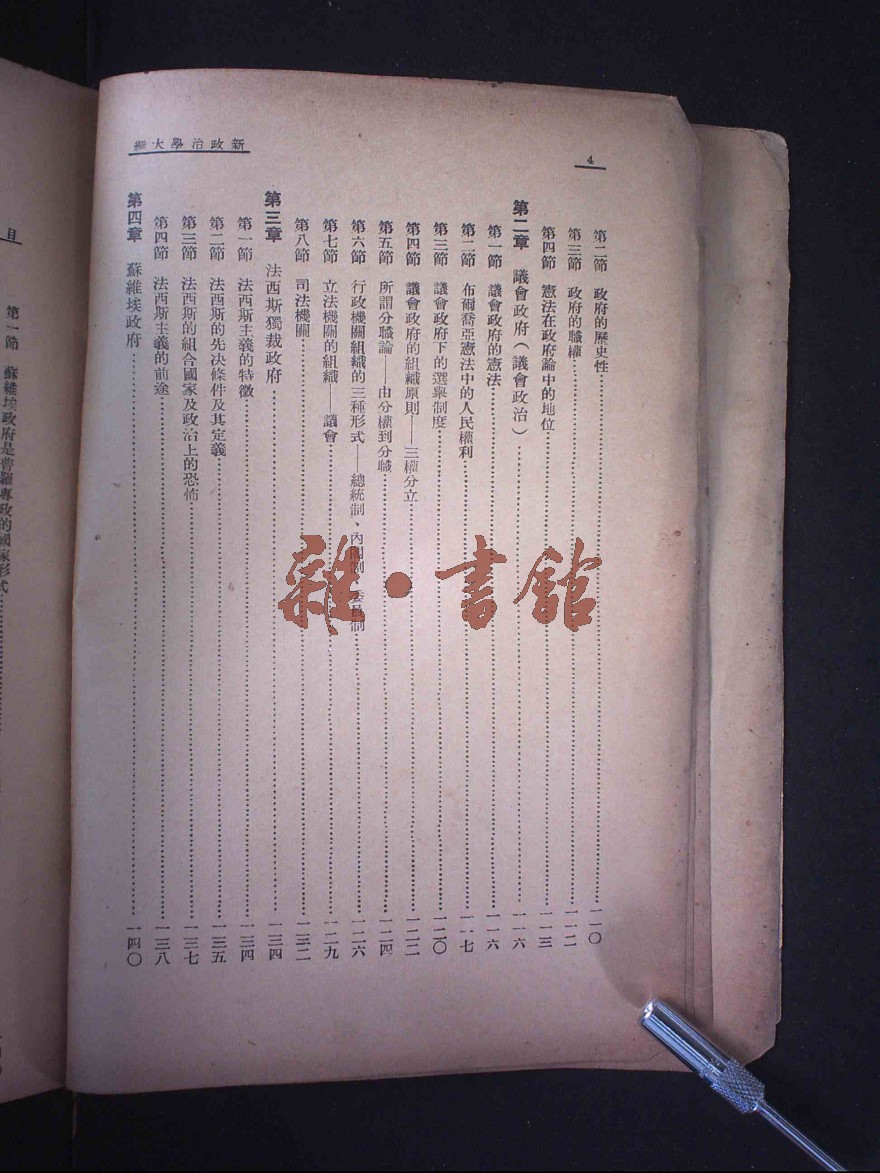 4
新政治學大綱
第二節 政府的歷史性 一一〇
第三節 政府的職權 一一二
第四節 憲法在政府論中的地位 一一三
第二章 議會政府(議會政治) 一一六
第一節 議會政府的憲法 一一六
第二節 布爾喬亞憲法中的人民權利 一一七
第三節 議會政府下的選舉制度 一二〇
第四節 議會政府的組織原則——三權分立 一二二
第五節 所謂分職論——由分權到分職 一二四
第六節 行政機關組織的三種形式——總統制、內閣制、委員制 一二六
第七節 立法機關的組織——議會 一二九
第八節 司法機關 一三二
第三章 法西斯獨裁政府 一三四
第一節 法西斯主義的特徵 一三四
第二節 法西斯的先決條件及其定義 一三五
第三節 法西斯的組合國家及政治上的恐怖 一三七
第四節 法西斯主義的前途 一三八
第四章 蘇維埃政府 一四〇
目
第一節 蘇維埃政府是普羅專政的國家形式
雜·書館